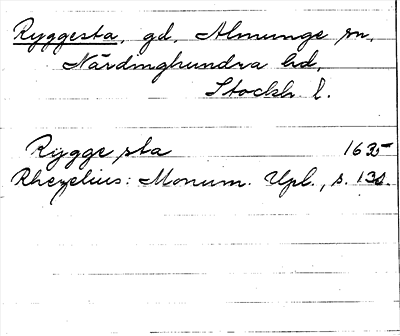 Ryggesta, gd, Almunge sn,
Närdinghundra hd,
Stockh l.
Rygge sta 1635
Rhezelius: Monum. Upl., s. 138.